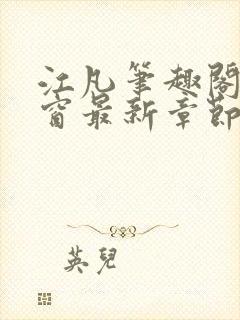 江凡筆趣閣
窗最新章節
英兒